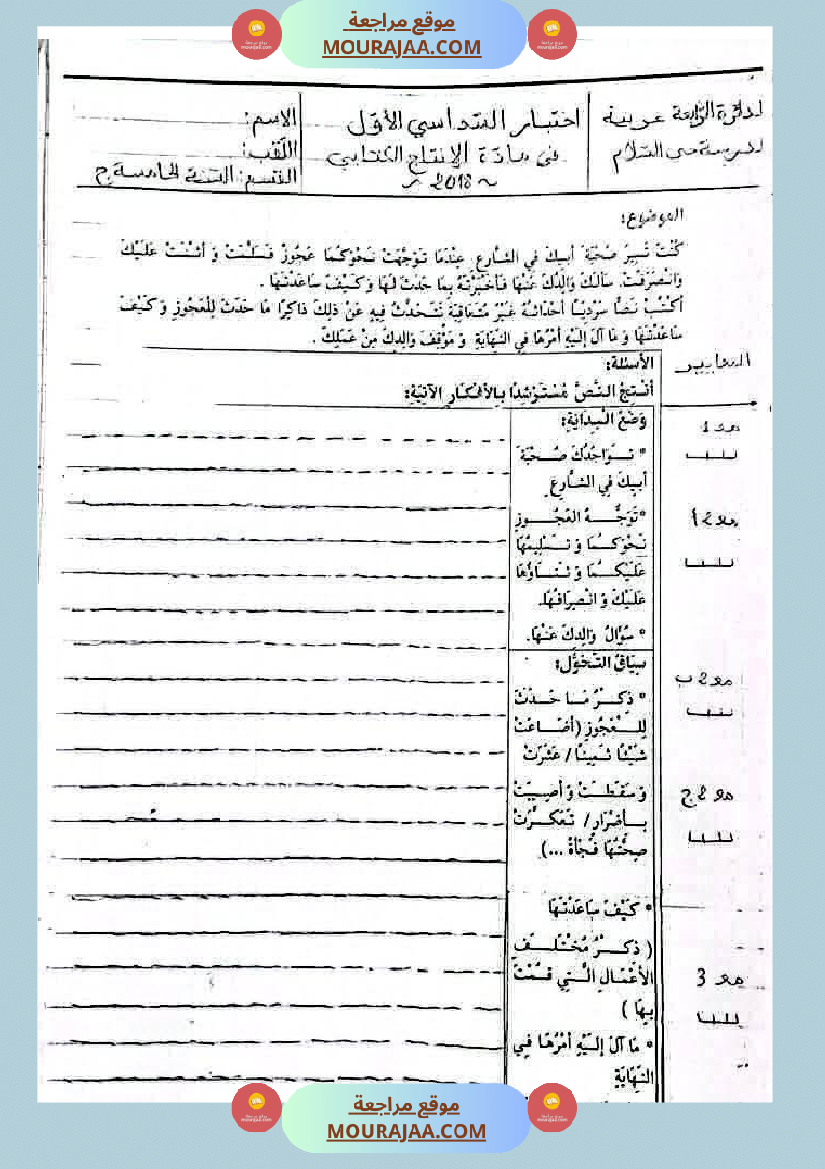 موقع مراجعة
MOURAJAA.COM
الاسم:
اللقب:
القسم: السنة الخامسة ج
اختبار السداسي الأوّل
في مادّة الإنتاج الكتابي
~ 2018 ~
الموضوع:
كُنْتَ تَسِيرُ صُحْبَةَ أَبِيكَ فِي الشَّارِعِ عِنْدَمَا تَوَجَّهَتْ نَحْوَكُمَا عَجُوزٌ فَسَلَّمَتْ وَ أَثْنَتْ عَلَيْكَ
وَانْصَرَفَتْ. سَأَلَكَ وَالِدُكَ عَنْهَا فَأَخْبَرْتَهُ بِمَا حَدَثَ لَهَا وَ كَيْفَ سَاعَدْتَهَا .
أُكْتُبْ نَصًّا سَرْدِيًّا أَحْدَاثُهُ غَيْرُ مُتَعَاقِبَةٍ تَتَحَدَّثُ فِيهِ عَنْ ذَلِكَ ذَاكِرًا مَا حَدَثَ لِلْعَجُوزِ وَ كَيْفَ
سَاعَدْتَهَا وَ مَا آلَ إِلَيْهِ أَمْرُهَا فِي النِّهَايَةِ وَ مَوْقِفَ وَالِدِكَ مِنْ عَمَلِكَ .
المعايير
الأسئلة:
أُنْتِجُ النَّصَّ مُسْتَرْشِدًا بِالأَفْكَارِ الآتِيَةِ:
وَضْعُ الْبِدَايَةِ:
مع 1
* تَوَاجُدُكَ صُحْبَةَ
أَبِيكَ فِي الشَّارِعِ
* تَوَجُّهُ الْعَجُوزِ
نَحْوَكُمَا وَ تَسْلِيمُهَا
عَلَيْكُمَا وَ ثَنَاؤُهَا
عَلَيْكَ وَ انْصِرَافُهَا.
* سُؤَالُ وَالِدِكَ عَنْهَا.
مع 2 أ
سِيَاقُ التَّحَوُّلِ:
مع 2 ب
* ذِكْرُ مَا حَدَثَ
لِلْعَجُوزِ (أَضَاعَتْ
شَيْئًا ثَمِينًا / عَثَرَتْ
وَ سَقَطَتْ وَ أُصِيبَتْ
بِأَضْرَارٍ / تَعَكَّرَتْ
صِحَّتُهَا فَجْأَةً ...)
مع 2 ج
* كَيْفَ سَاعَدْتَهَا
( ذِكْرُ مُخْتَلَفِ
الأَعْمَالِ الَّتِي قُمْتَ
بِهَا )
مع 3
* مَا آلَ إِلَيْهِ أَمْرُهَا فِي
النِّهَايَةِ
موقع مراجعة
MOURAJAA.COM